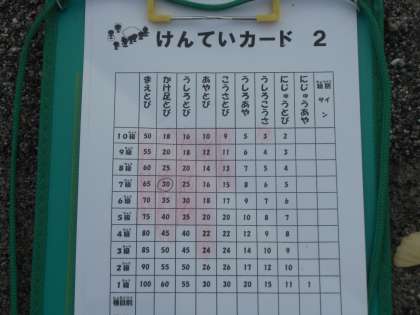 けんていカード 2
まえとび かけ足とび うしろとび あやとび こうさとび うしろあや うしろこうさ にじゅうとび にじゅうあや 級別サイン
10級 50 18 16 10 9 5 3 2
9級 55 20 18 12 11 6 4 3
8級 60 25 20 14 13 7 5 4
7級 65 30 25 16 15 8 6 5
6級 70 35 30 18 17 9 7 6
5級 75 40 35 20 20 10 8 7
4級 80 45 40 22 22 12 9 8
3級 85 50 45 24 24 14 10 9
2級 90 55 50 26 26 17 12 10
1級 100 60 55 30 30 20 15 11 1
種目別